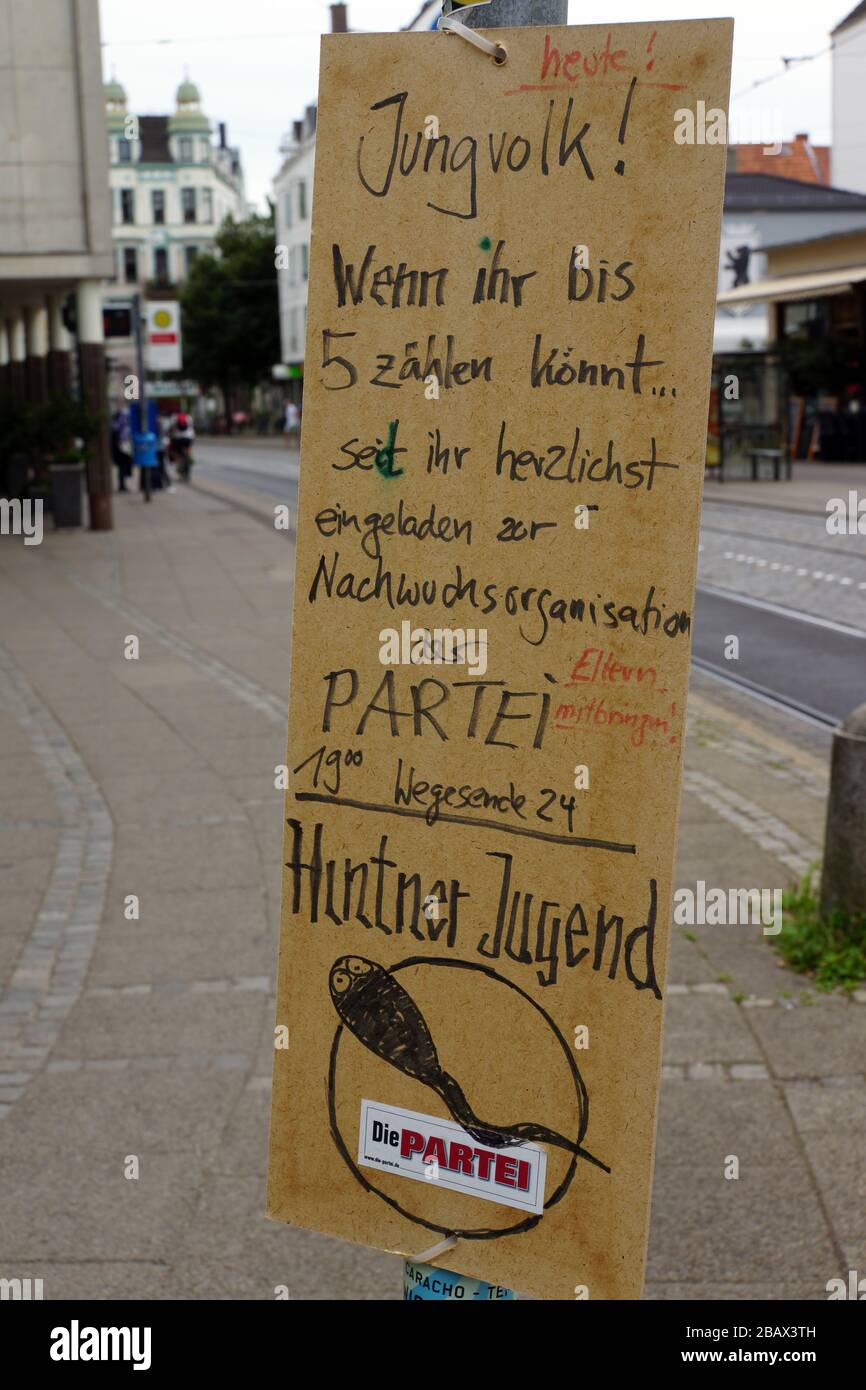 heute!
Jungvolk!
Wenn ihr bis
5 zählen könnt...
seid ihr herzlichst
eingeladen zur
Nachwuchsorganisation
der
PARTEi
Eltern
mitbringen!
19⁰⁰ Wegesende 24
Hintner Jugend
Die PARTEI
www.die-partei.de
CARACHO - TE
alamy
Image ID: 2BAX3TH
www.alamy.com